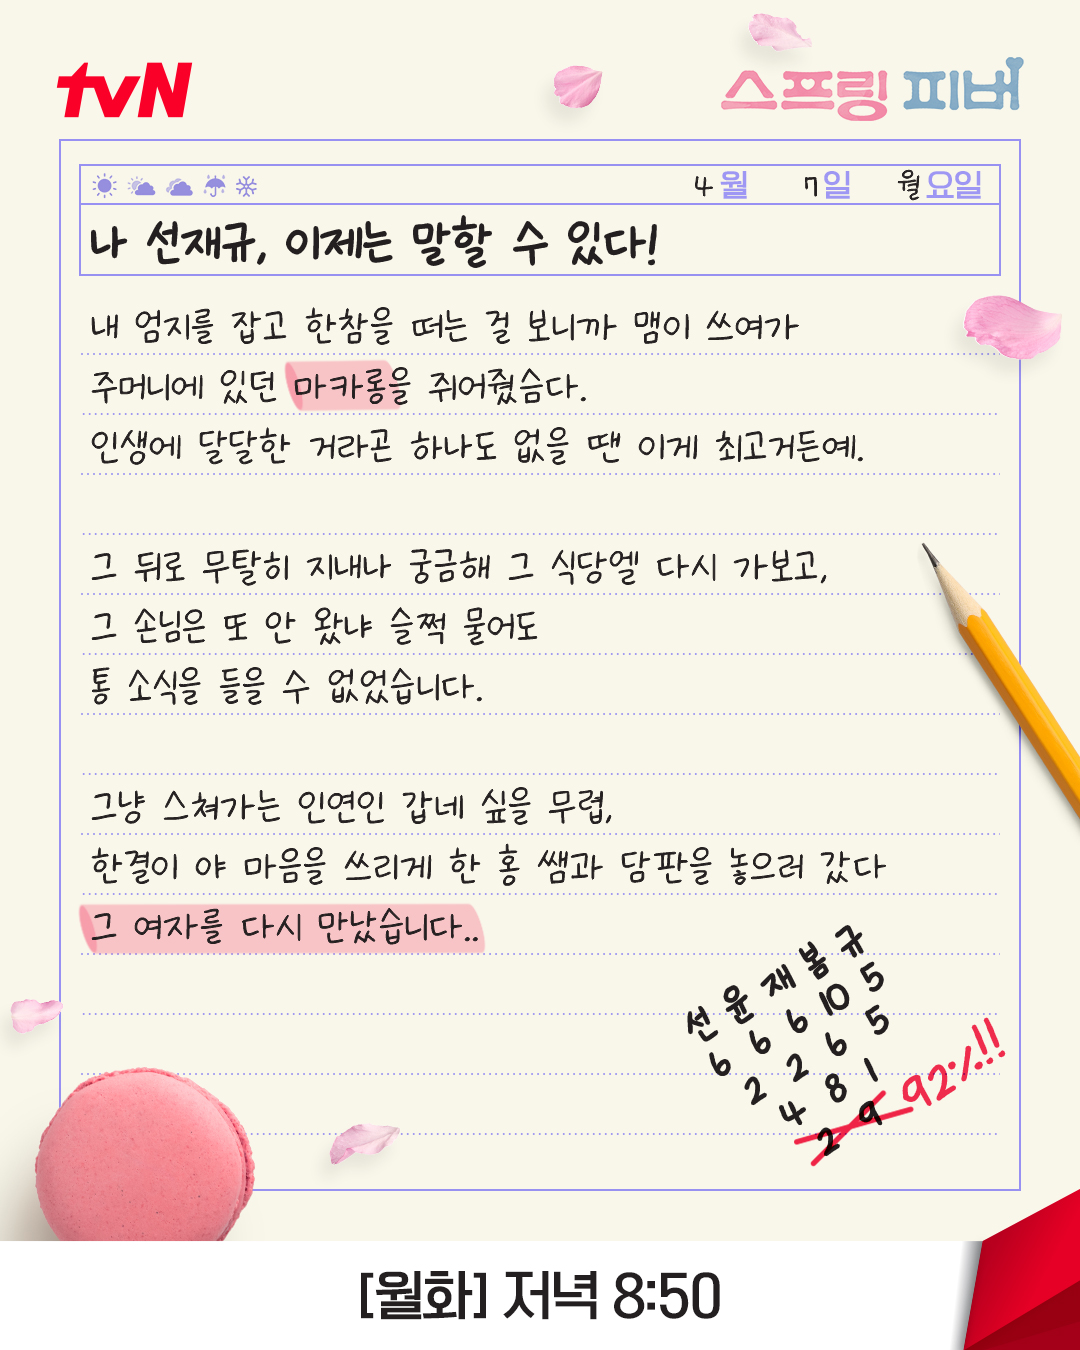 tvN
스프링 피버
4월 7일 월요일
나 선재규, 이제는 말할 수 있다!
내 엄지를 잡고 한참을 떠는 걸 보니까 맴이 쓰여가
주머니에 있던 마카롱을 쥐어줬슴다.
인생에 달달한 거라곤 하나도 없을 땐 이게 최고거든예.
그 뒤로 무탈히 지내나 궁금해 그 식당엘 다시 가보고,
그 손님은 또 안 왔냐 슬쩍 물어도
통 소식을 들을 수 없었습니다.
그냥 스쳐가는 인연인 갑네 싶을 무렵,
한결이 야 마음을 쓰리게 한 홍 쌤과 담판을 놓으러 갔다
그 여자를 다시 만났습니다..
선 윤 재 봄 규
6 6 6 10 5
2 2 6 5
4 8 1
2 9 92%!!
[월화] 저녁 8:50